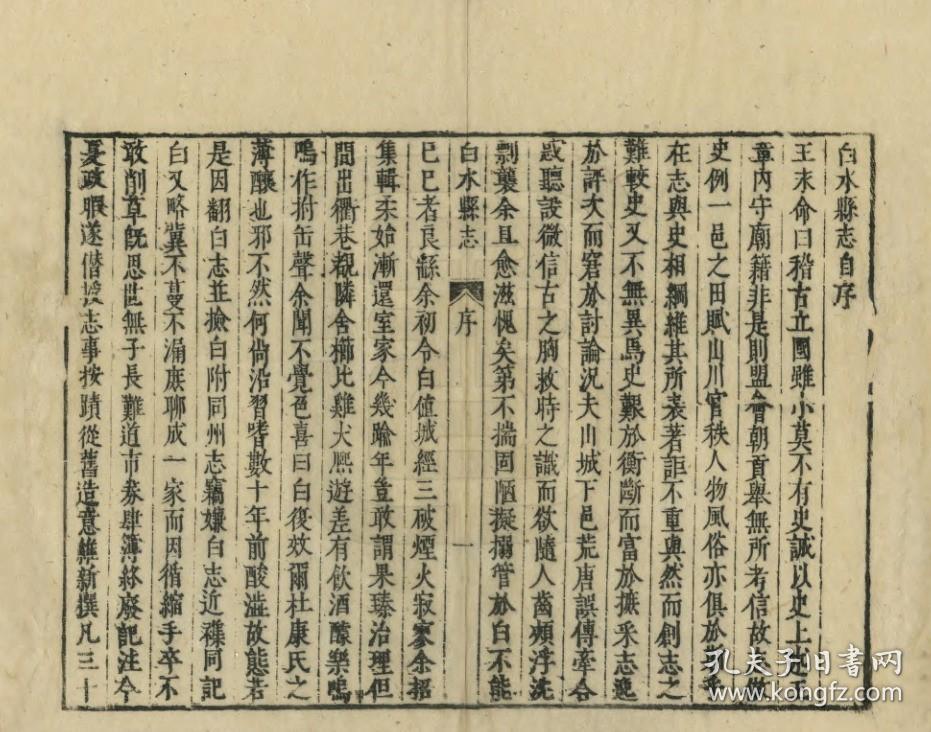 白水縣志自序
王末命曰稽古立國雖小莫不有史誠以史上出王
章內守廟籍非是則盟會朝貢舉無所考信故志
史例一邑之田賦山川官秩人物風俗亦俱於是乎
在志與史相綱維其所表著詎不重與然而創志之
難較史又不無異焉史艱於衡斷而富於摭采志逸
於評大而窘於討論況夫山城下邑荒唐誤傳牽合
或聽設微信古之胸救時之識而欲隨人齒頰浮沈
剽襲余且愈滋愧矣第不揣固陋擬搦管於白不能
白水縣志 序 一
已已者良繇余初令白值城經三破煙火寂寥余招
集輯柔始漸還室家今幾踰年豈敢謂果臻治理但
間出衢巷覩隣舍櫛比雞犬熙遊差有飲酒醵樂嗚
嗚作拊缶聲余聞不覺色喜曰白復效爾杜康氏之
薄釀也邪不然何尚沿習嗜數十年前酸澁故態若
是因翻白志並撿白附同州志竊嫌白志近襍同記
白又略冀不蔓不漏庶聊成一家而因循縮手卒不
敢削草旣思世無子長難道市券肆簿終廢記注今
憂政暇遂僭援志事按蹟從舊造意維新撰凡三十
孔夫子旧書网
www.kongfz.com